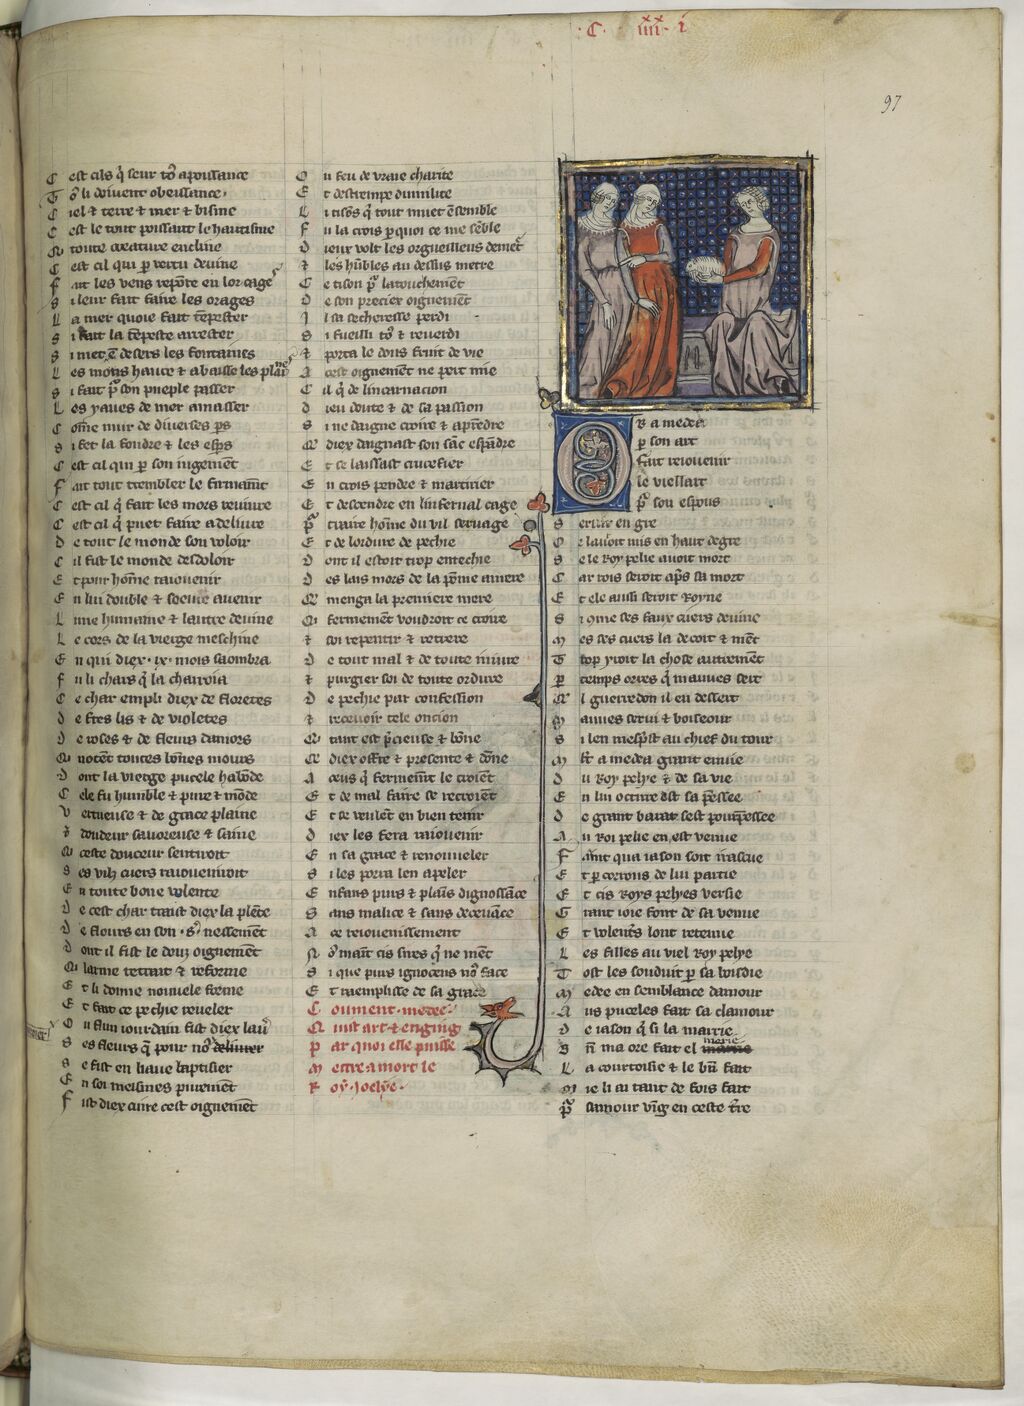 .C. iiii.xx i
97
C est cils q̃ seur tõ a poissance
T õ li doivent obeissance.
C iel ⁊ terre ⁊ mer ⁊ bisme
C est le tout poissant le hautisme
toute creature encline
C est cil qui ꝑ vertu devine
F ait les vens repõre en lor cage
S i leur fait faire les orages
L a mer quoie fait tẽpester
S i fait la tẽpeste arrester
S i met desers les fontaines
L es mons hauce ⁊ abaisse les
S i fait son pueple passer
L es yaues de mer amasser
C õme mur de diverses ꝑs
S i fet la foudre ⁊ les esꝑs
C est cil qui ꝑ son iugemẽt
F ait tout trembler le firmamt̃
C est cil q̃ fait les mors revivre
C est cil q̃ puet faire a delivre
D e tout le monde son voloir
C il fist le monde desdoloir
E t pour hõme raiovenir
E n lui double ⁊ soeve avenir
L une humaine ⁊ lautre devine
L e cors de la vierge meschine
E n qui diex .ix. mois saombra
F u li chars q̃ la charroia
C e char empli diex de floretes
D e fres lis ⁊ de violetes
D e roses ⁊ de fleurs damors
Q notẽt toutes bõnes mours
D ont la vierge pucele habõde
C ele fu humble ⁊ pure ⁊ mõde
V ertueuse ⁊ de grace plaine
⁊ doudeur savoreuse ⁊ saine
Q ceste douceur sentiroit
S es vilz cuers raioveniroit
E n toute bone volente
D e cest char traist diex la plẽte
D e flours en son nessement
D ont il fist le douz oignemẽt
Q larme retrait ⁊ reforme
E t li donne nouvele forme
E t fait ce pechie reveler
O u flun iourdain fist diex lav̾
S es fleurs q̃ pour delivrer
S e fist en liaue baptisier
E n soi meismes purement
F ist diex cuire cest oignemẽt
O u feu de vraie charite
E t destrempe dumilite
L i tisõs q̃ tout muet ẽsemble
F u la crois ꝑquoi ce me sẽble
D ieux volt les orgueilleus demet̃
⁊ les hũbles au dessus metre
C e tison latouchemẽt
D e son precier oignemẽt
I l sa secheresse perdi
S i fueilli tõ ⁊ reverdi
⁊ porta le dous fruit de vie
A cest oignemẽt ne port mie
C il q̃ de lincarnacion
D ieu doute ⁊ de sa passion
S i ne daigne croire ⁊ apr̃dre
Q diex daignast son sãc espãdre
E t se laissast crucefier
E n crois pendre ⁊ martirier
E t descendre en linfernal cage
P traire hõme du vil servage
E t de lordure de pechie
D ont il estoit trop entechie
D es lais mors de la põme amere
Q menga la premiere mere
Q fermemẽt voudroit ce croire
⁊ soi repentir ⁊ retrere
D e tout mal ⁊ de toute iniure
⁊ purgier soi de toute ordure
D e pechie par confession
⁊ recevoir tele oncion
Q tant est p̃cieuse ⁊ bõne
Q diex offre ⁊ presente ⁊ dõne
A ceus q̃ fermemt̃ le croiẽt
E t de mal faire se recroiẽt
E t se veulẽt en bien tenir
D iex les fera raiovenir
E n sa grace ⁊ renouveler
S i les porra len apeler
E nfans purs ⁊ plais̃ dignossãce
S ans malice ⁊ sans decevãce
A ce reiovenissement
N õ maint cis sires q̃ ne mẽt
S i que purs ignocens nõ face
E t raemplisse de sa grace
C oument. medee
Q uist art ⁊ enging
P ar quoi elle puisse
M ettre a mort le
R oy. pelye.
O R a medee
ꝑ son art
Fait reiovenir
le viellart
son espous
S ervir en gre
Q e lavoit mis en haut degre
S e le Roy pelie avoit mort
C ar rois seroit apr̃s sa mort
E t ele aussi seroit Royne
S i que ses faux cuers devine
M es ses cuers la decoit ⁊ mẽt
T rop yroit la chose autremẽt
P temps ores q̃ mauves sert
Q l guerredon il en dessert
M auves servi ⁊ boiseour
S i len mesp̃st au chief du tour
M lt̃ a medea grant envie
D u Roy pelye ⁊ de sa vie
E n lui occirre est sa pẽssee
D e grant barat sest pourpẽssee
A u Roi pelie en est venue
F aint qua iason soit irascue
E t ꝑ corrous de lui partie
E t cis Roys pelyes versie
G rant ioie font de sa venue
E t volẽtẽs lont retenue
L es filles au viel Roy pelye
T ost les souduit ꝑ sa boisdie
M edee en semblance damour
A us pucelles fait sa clamour
D e iason q̃ si la marrie
B ñ ma ore fait el merie
L a courtoisie ⁊ le bñ fait
Q ie li ai tant de fois fait
P samour ving en ceste tr̃re